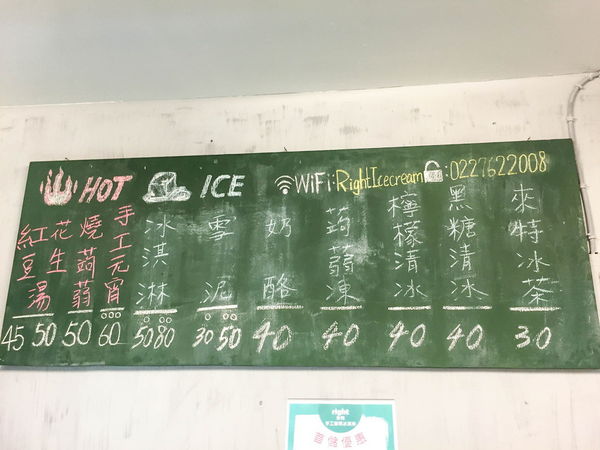 HOT
ICE
WiFi:RightIcecream
:0227622008
紅豆湯
花生湯
燒蒟蒻
手工元宵
冰淇淋
雪泥
奶酪
蒟蒻凍
檸檬清冰
黑糖清冰
來特冰茶
45 50 50 60 50 80 30 50 40 40 40 40 30
right